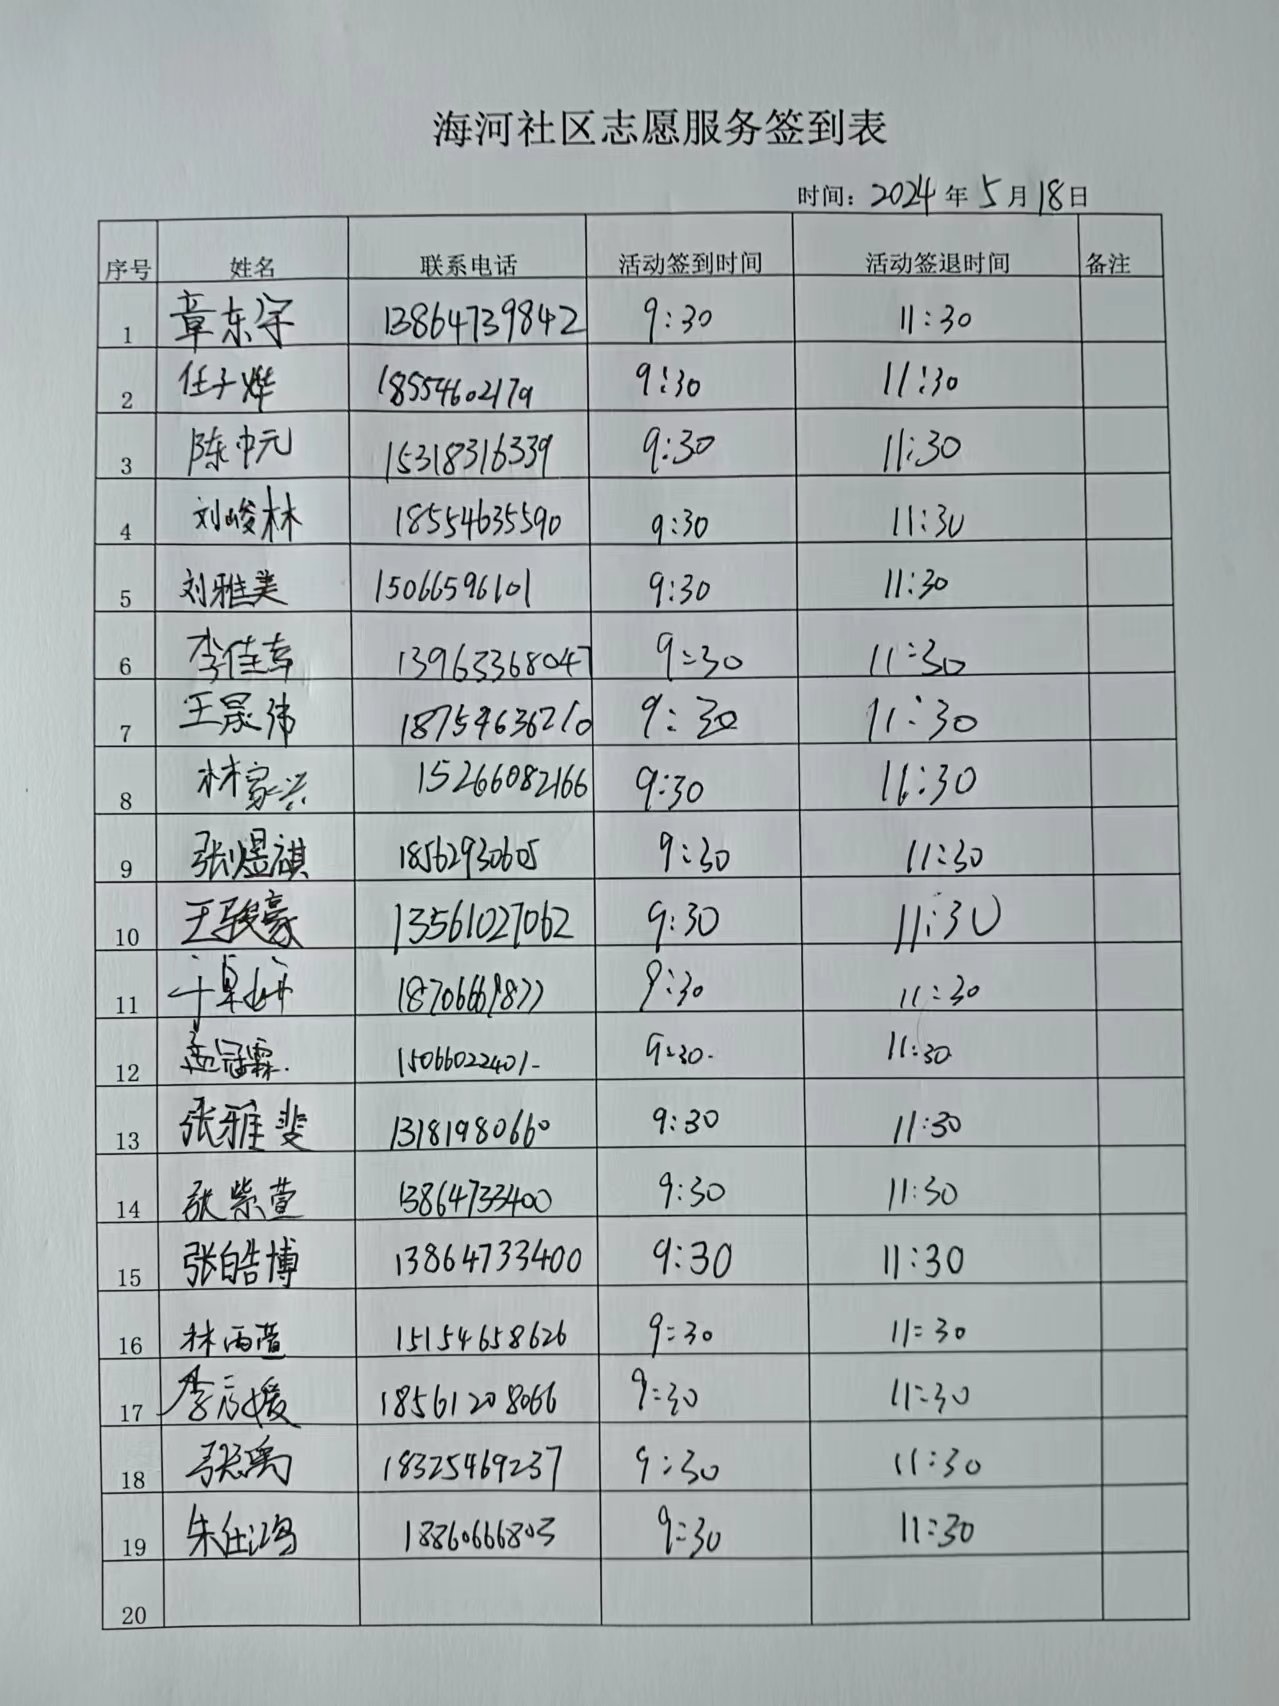 海河社区志愿服务签到表
时间：2024年5月18日
序号 姓名 联系电话 活动签到时间 活动签退时间 备注
1 章东宇 13864739842 9:30 11:30
2 任子烨 18554602179 9:30 11:30
3 陈中元 15318316339 9:30 11:30
4 刘峻林 18554635590 9:30 11:30
5 刘雅美 15066596101 9:30 11:30
6 李佳 13963368047 9:30 11:30
7 王晟伟 18754636210 9:30 11:30
8 林家兴 15266082166 9:30 11:30
9 张煜祺 18562930605 9:30 11:30
10 王骏豪 13561027062 9:30 11:30
11 18706669877 9:30 11:30
12 孟冠霖. 15066022401- 9:30. 11:30
13 张雅斐 13181980660 9:30 11:30
14 张紫萱 13864733400 9:30 11:30
15 张皓博 13864733400 9:30 11:30
16 林雨萱 15154658626 9:30 11:30
17 李媛 18561208066 9:30 11:30
18 张禹 18325469237 9:30 11:30
19 朱仕鸿 18860666803 9:30 11:30
20